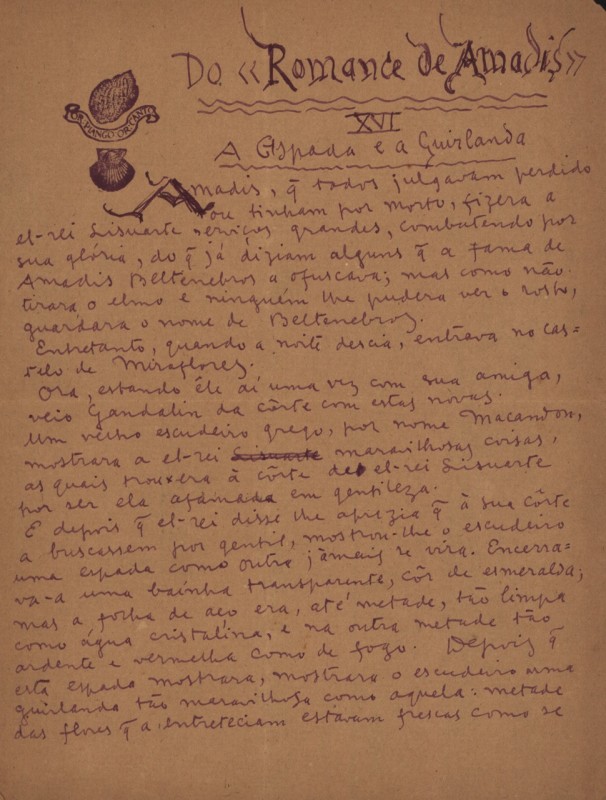 Do «Romance de Amadis»
OR PIANGO OR CANTO
XVI
A Espada e a Guirlanda
Amadis, q̃ todos julgavam perdido
ou tinham por morto, fizera a
el-rei Lisuarte serviços grandes, combatendo por
sua glória, do q̃ já diziam alguns q̃ a fama de
Amadis Beltenebros a ofuscava; mas como não
tirara o elmo e ninguém lhe pudera ver o rosto,
guardara o nome de Beltenebros.
Entretanto, quando a noite descia, entrava no cas=
telo de Miraflores.
Ora, estando êle aí uma vez com sua amiga,
veio Gandalin da côrte com estas novas.
Um velho escudeiro grego, por nome Macandon,
mostrara a el-rei Lisuarte maravilhosas coisas,
as quais trouxera à côrte de el-rei Lisuarte
por ser ela afamada em gentileza.
E depois q̃ el-rei disse lhe aprazia q̃ à sua côrte
a buscassem por gentil, mostrou-lhe o escudeiro
uma espada como outra jàmais se vira. Encerra=
va-a uma baínha transparente, côr de esmeralda;
mas a folha de aço era, até metade, tão limpa
como água cristalina, e na outra metade tão
ardente e vermelha como de fogo. Depois q̃
esta espada mostrara, mostrara o escudeiro uma
guirlanda tão maravilhosa como aquela: metade
das flores q̃ a entreteciam estavam frescas como se